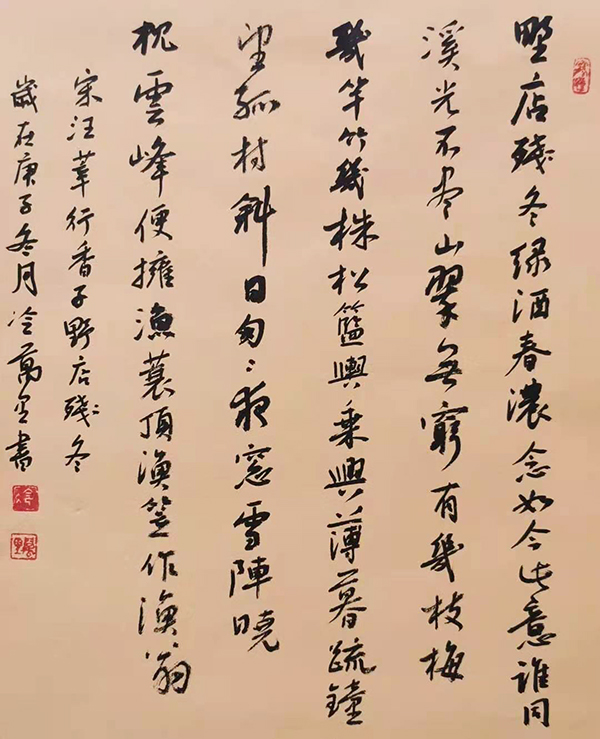 野店殘冬绿酒春濃念如今此意誰同
溪光不尽山翠無窮有幾枝梅
幾竿竹幾株松籃輿乘興薄暮疏鐘
望孤村斜日匆々夜窓雪陣曉
枕雲峰便擁漁蓑頂漁笠作漁翁
宋汪莘行香子野店殘冬
歲在庚子冬月冷萬里書